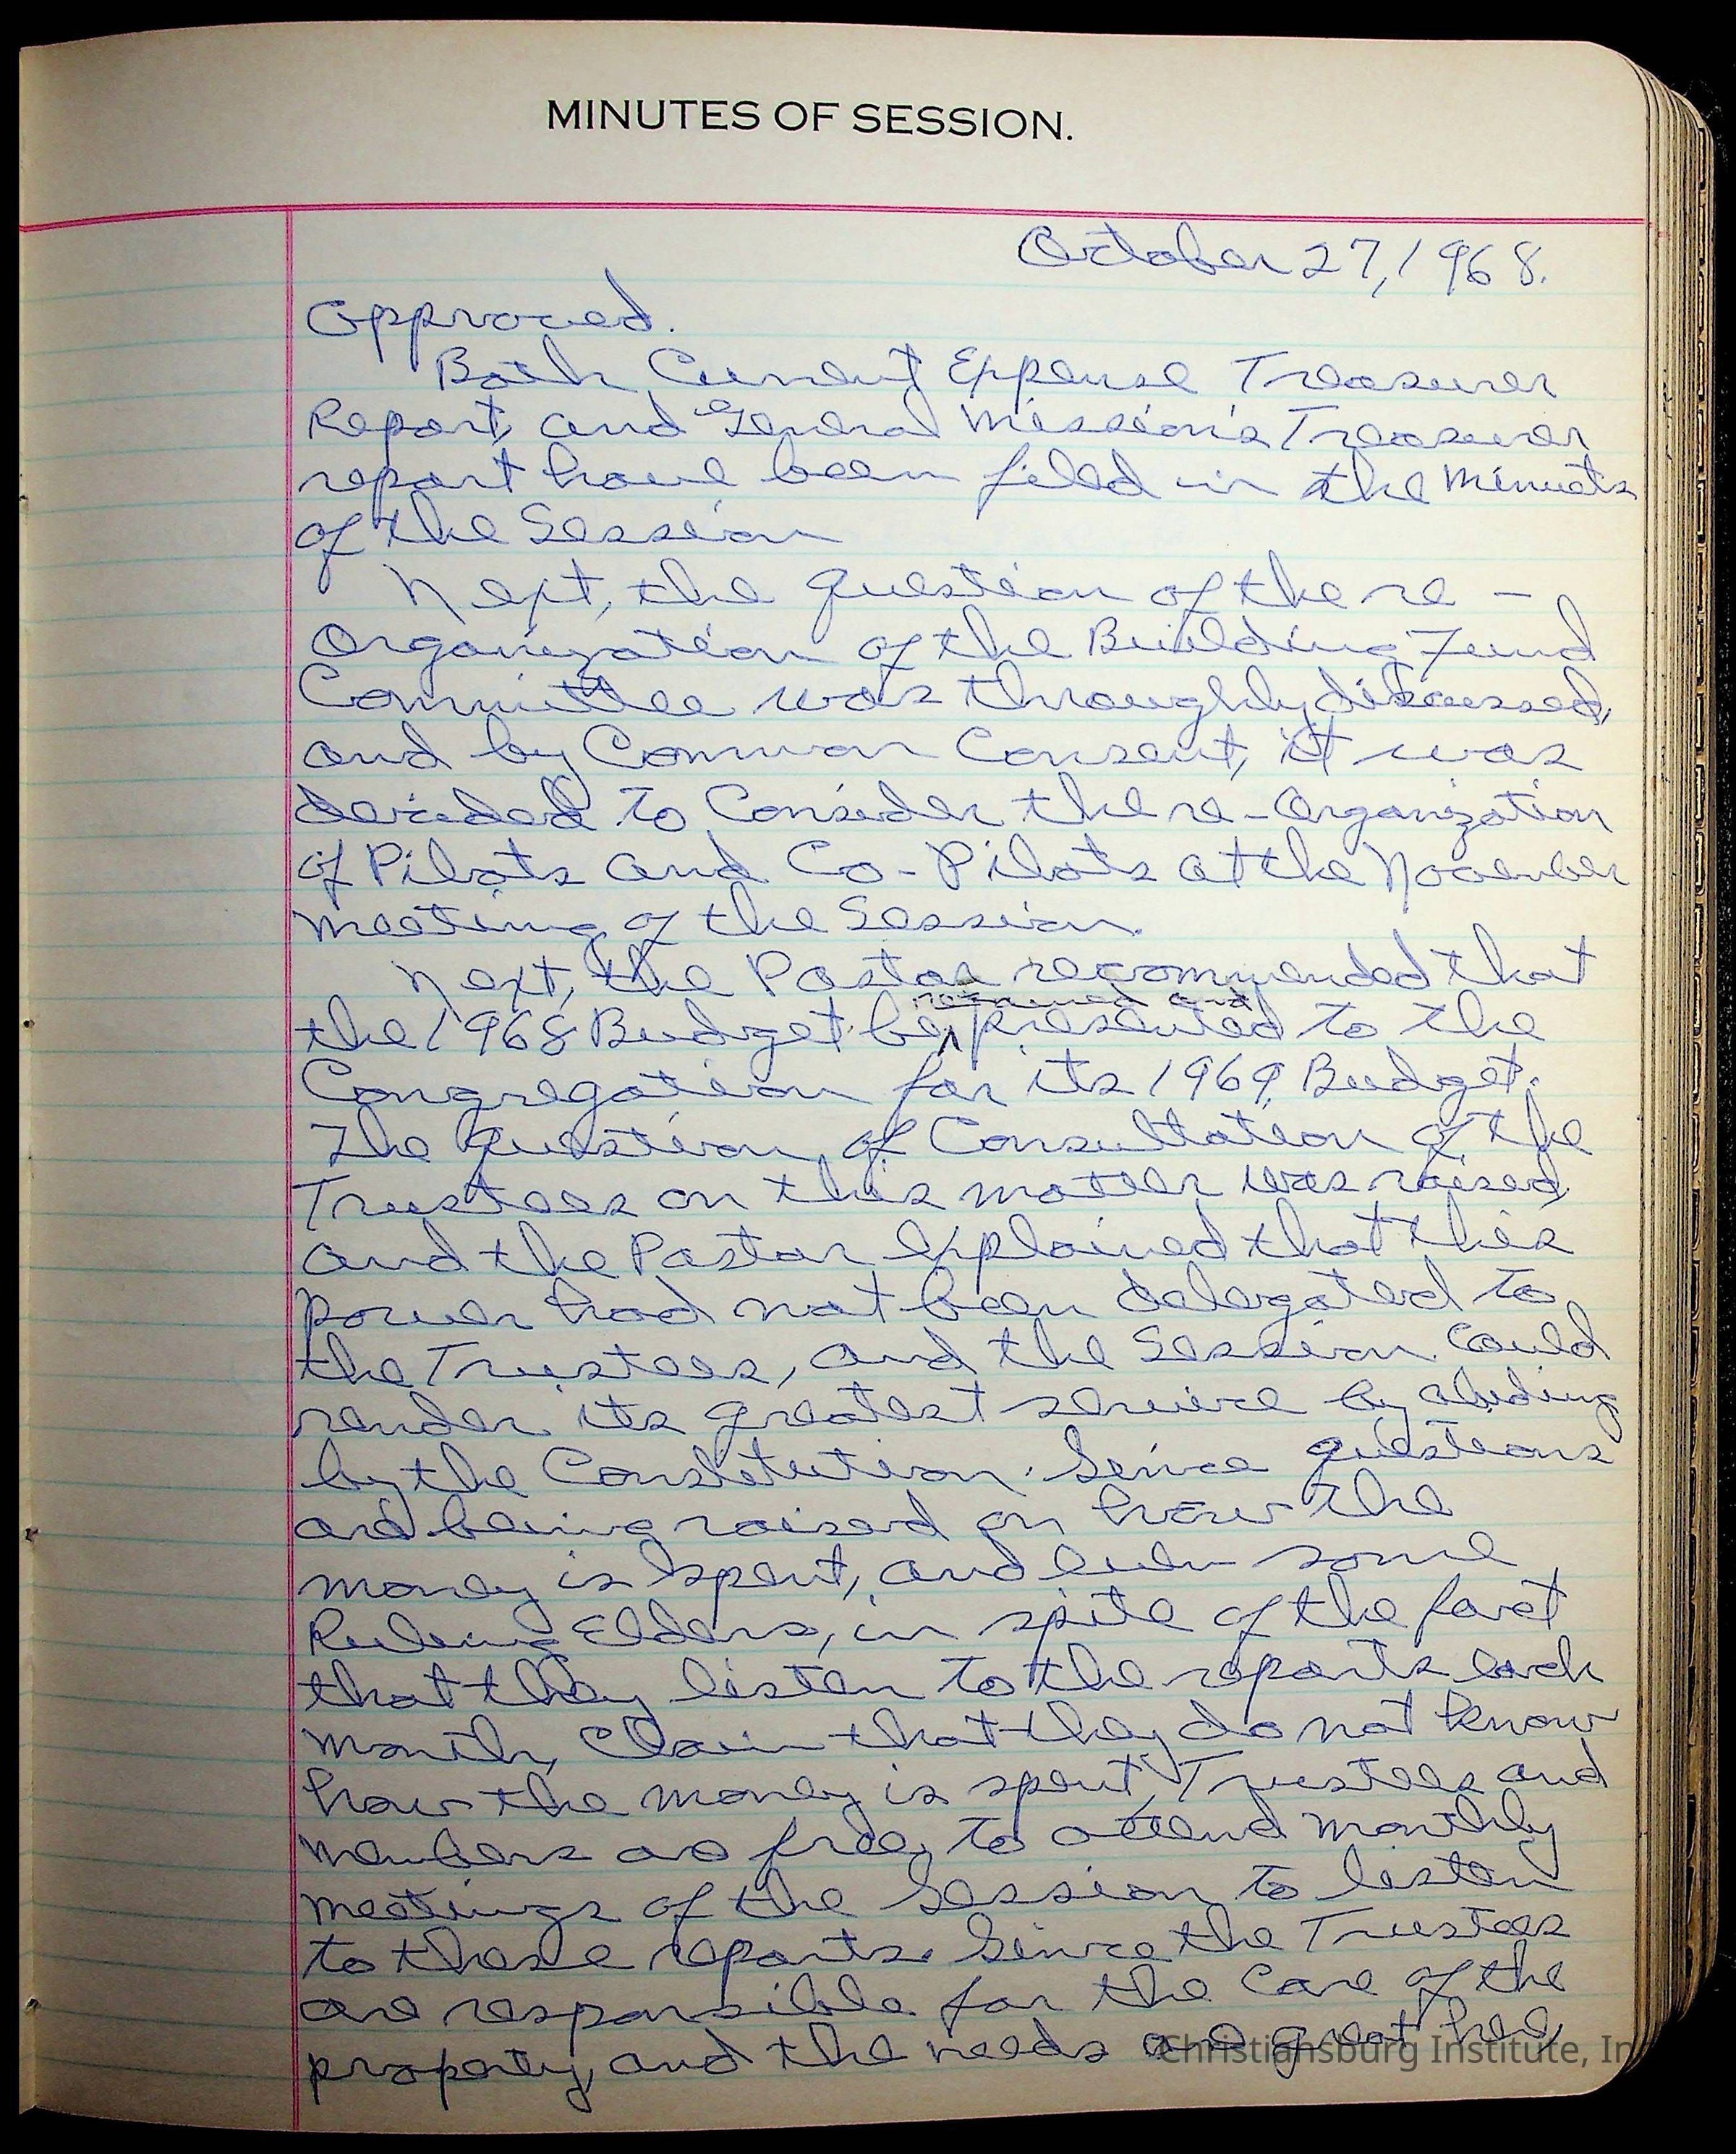 MINUTES OF SESSION.
October 27, 1968.
Approved.
Both Current Expense Treasurer
Report, and General Mission's Treasurer
report have been filed in the Minuets
of the Session
Next, the question of the re -
Organization of the Building Fund
Committee was throughly discussed,
and by Common Consent, it was
decided to Consider the re-Organization
of Pilots and Co-Pilots at the November
meeting of the Session.
Next, the Pastor recommended that
and
the 1968 Budget be presented to the
Congregation for its 1969 Budget.
The question of Consultation of the
Trustees on this matter was raised
and the Pastor explained that this
power had not been delegated to
the Trustees, and the Session Could
render its greatest service by abiding
by the Constitution. Since questions
are being raised on how the
money is spent, and even some
Ruling Elders, in spite of the fact
that they listen to the reports each
month, Claim that they do not know
how the money is spent, Trustees and
members are free to attend monthly
meetings of the Session to listen
to these reports. Since the Trustees
are responsible for the Care of the
property, and the needs are great here,
Christiansburg Institute, In